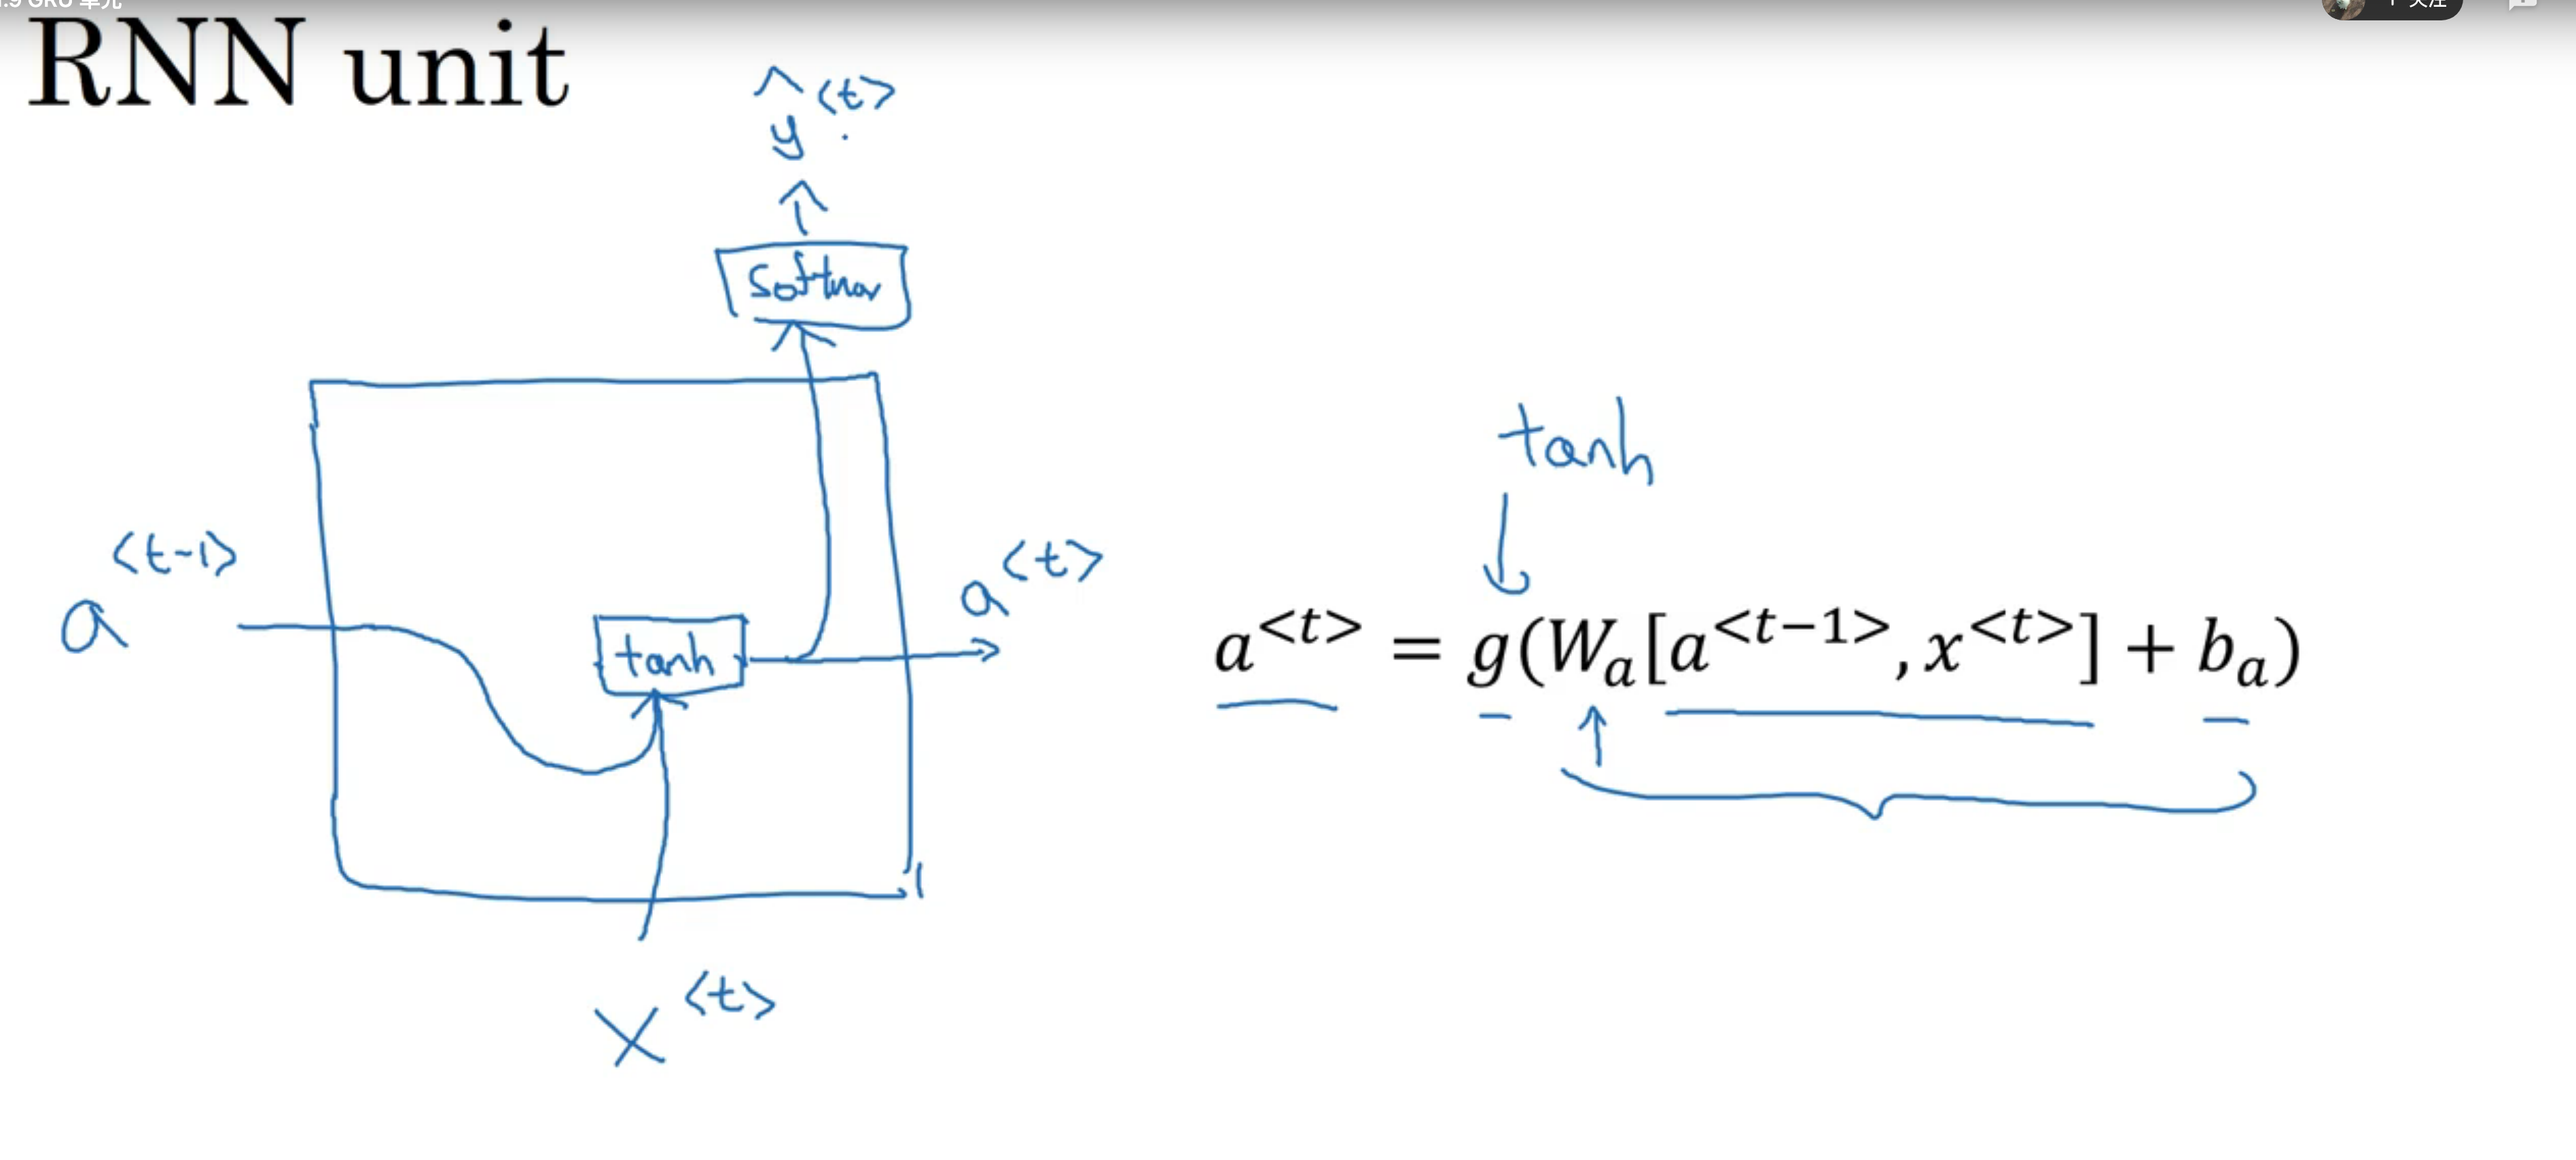 1.9 GRU 单元
+ 关注
RNN unit
ŷ<t>
softmax
tanh
a<t-1>
a<t>
tanh
a<t> = g(Wₐ[a<t−1>, x<t>] + bₐ)
x<t>